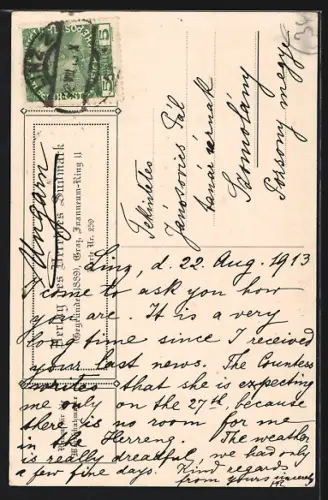 Tekintetes
Jánosovics Pál
tanár urnak
Szomolány
Pozsony megye
Ungarn
Verlag des Vereines Südmark
(Gegründet 1889), Graz, Joanneum-Ring 11
Karte Nr. 250
5 5
Linz, d. 22. Aug. 1913
I come to ask you how
you are. It is a very
long time since I received
your last news. The Countess
writes that she is expecting
me only on the 27th, because
there is no room for me
in the Herreng. The weather
is really dreadful, we had only
a few fine days. Kind regards
from yours sincerely
34